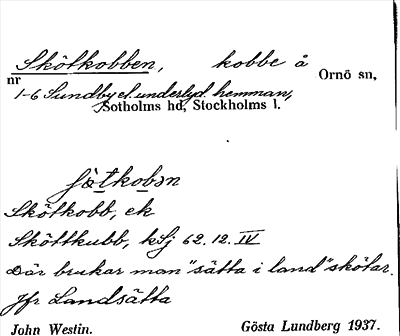 Skötkobben, kobbe å Ornö sn,
nr 1-6 Sundby el. underlyd. hemman,
Sotholms hd, Stockholms l.
Skötkobb, ek
Sköttkubb, kSj 62.12.IV
Där brukar man "sätta i land" skötar.
Jfr Landsätta
John Westin. Gösta Lundberg 1937.